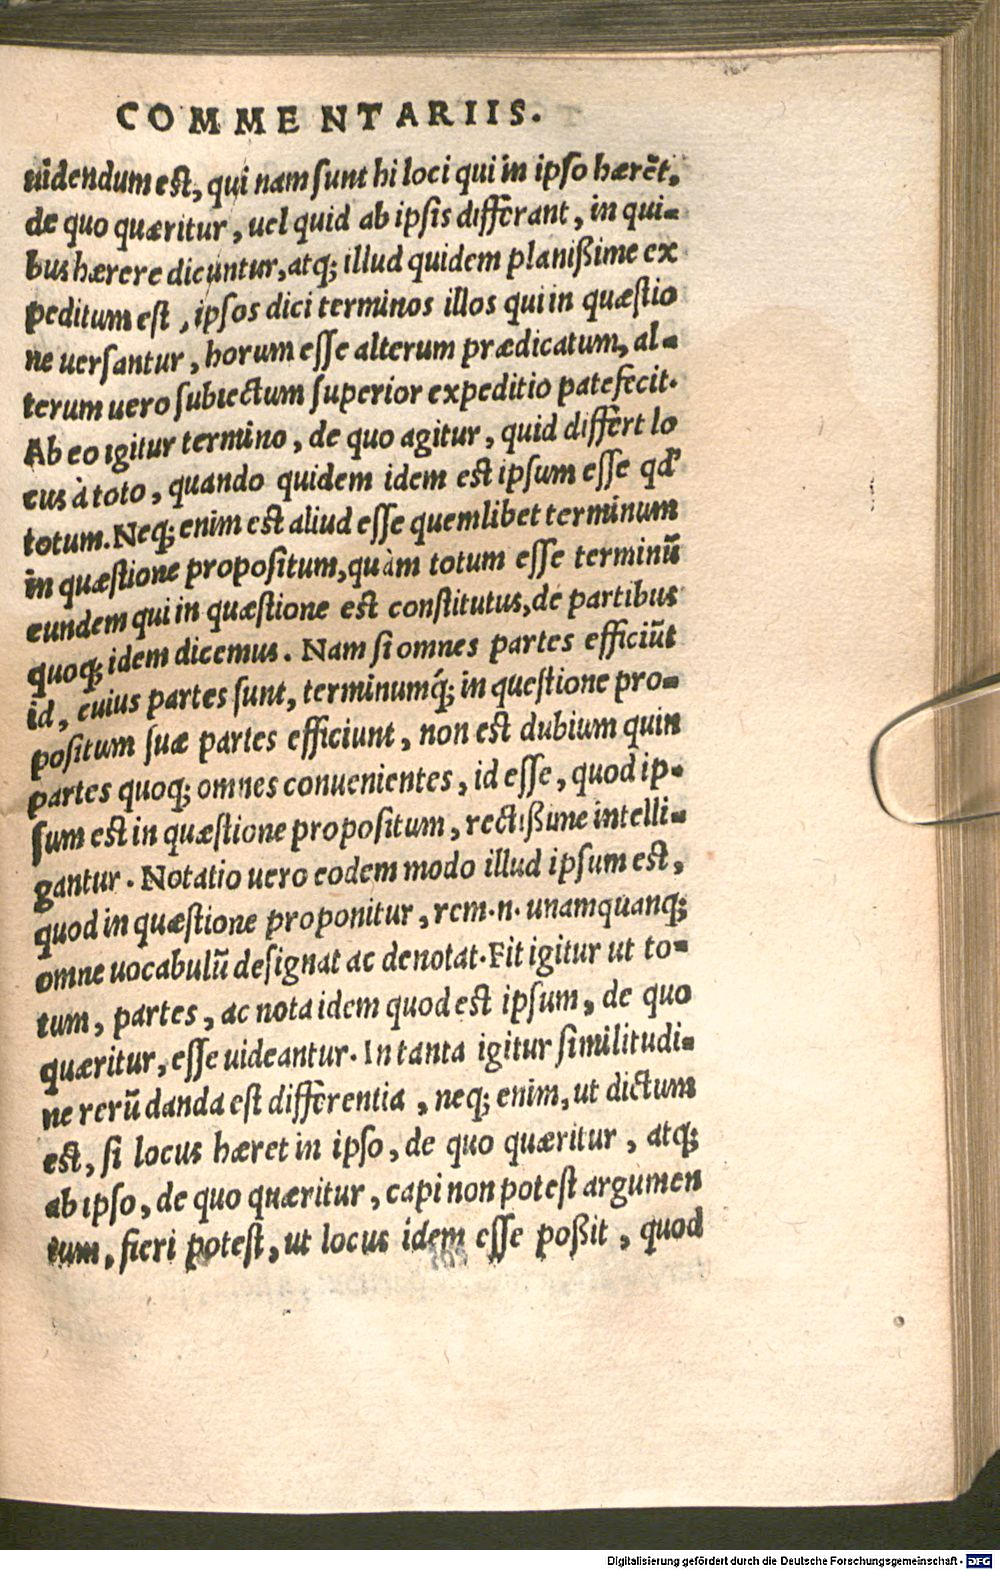 COMMENTARIIS.
uidendum est, qui nam sunt hi loci qui in ipso hærēt,
de quo quæritur, uel quid ab ipsis differant, in qui-
bus hærere dicuntur, atq; illud quidem planißime ex
peditum est, ipsos dici terminos illos qui in quæstio
ne uersantur, horum esse alterum prædicatum, al-
terum uero subiectum superior expeditio patefecit.
Ab eo igitur termino, de quo agitur, quid differt lo
cus à toto, quando quidem idem est ipsum esse qd'
totum. Neq; enim est aliud esse quemlibet terminum
in quæstione propositum, quàm totum esse terminū
eundem qui in quæstione est constitutus, de partibus
quoq; idem dicemus. Nam si omnes partes efficiūt
id, cuius partes sunt, terminumq́; in questione pro-
positum suæ partes efficiunt, non est dubium quin
partes quoq; omnes conuenientes, id esse, quod ip-
sum est in quæstione propositum, rectißime intelli-
gantur. Notatio uero eodem modo illud ipsum est,
quod in quæstione proponitur, rem.n. unamquanq;
omne uocabulū designat ac denotat. Fit igitur ut to-
tum, partes, ac nota idem quod est ipsum, de quo
quæritur, esse uideantur. In tanta igitur similitudi-
ne rerū danda est differentia, neq; enim, ut dictum
est, si locus hæret in ipso, de quo quæritur, atq;
ab ipso, de quo quæritur, capi non potest argumen
tum, fieri potest, ut locus idem esse poßit, quod
Digitalisierung gefördert durch die Deutsche Forschungsgemeinschaft - DFG